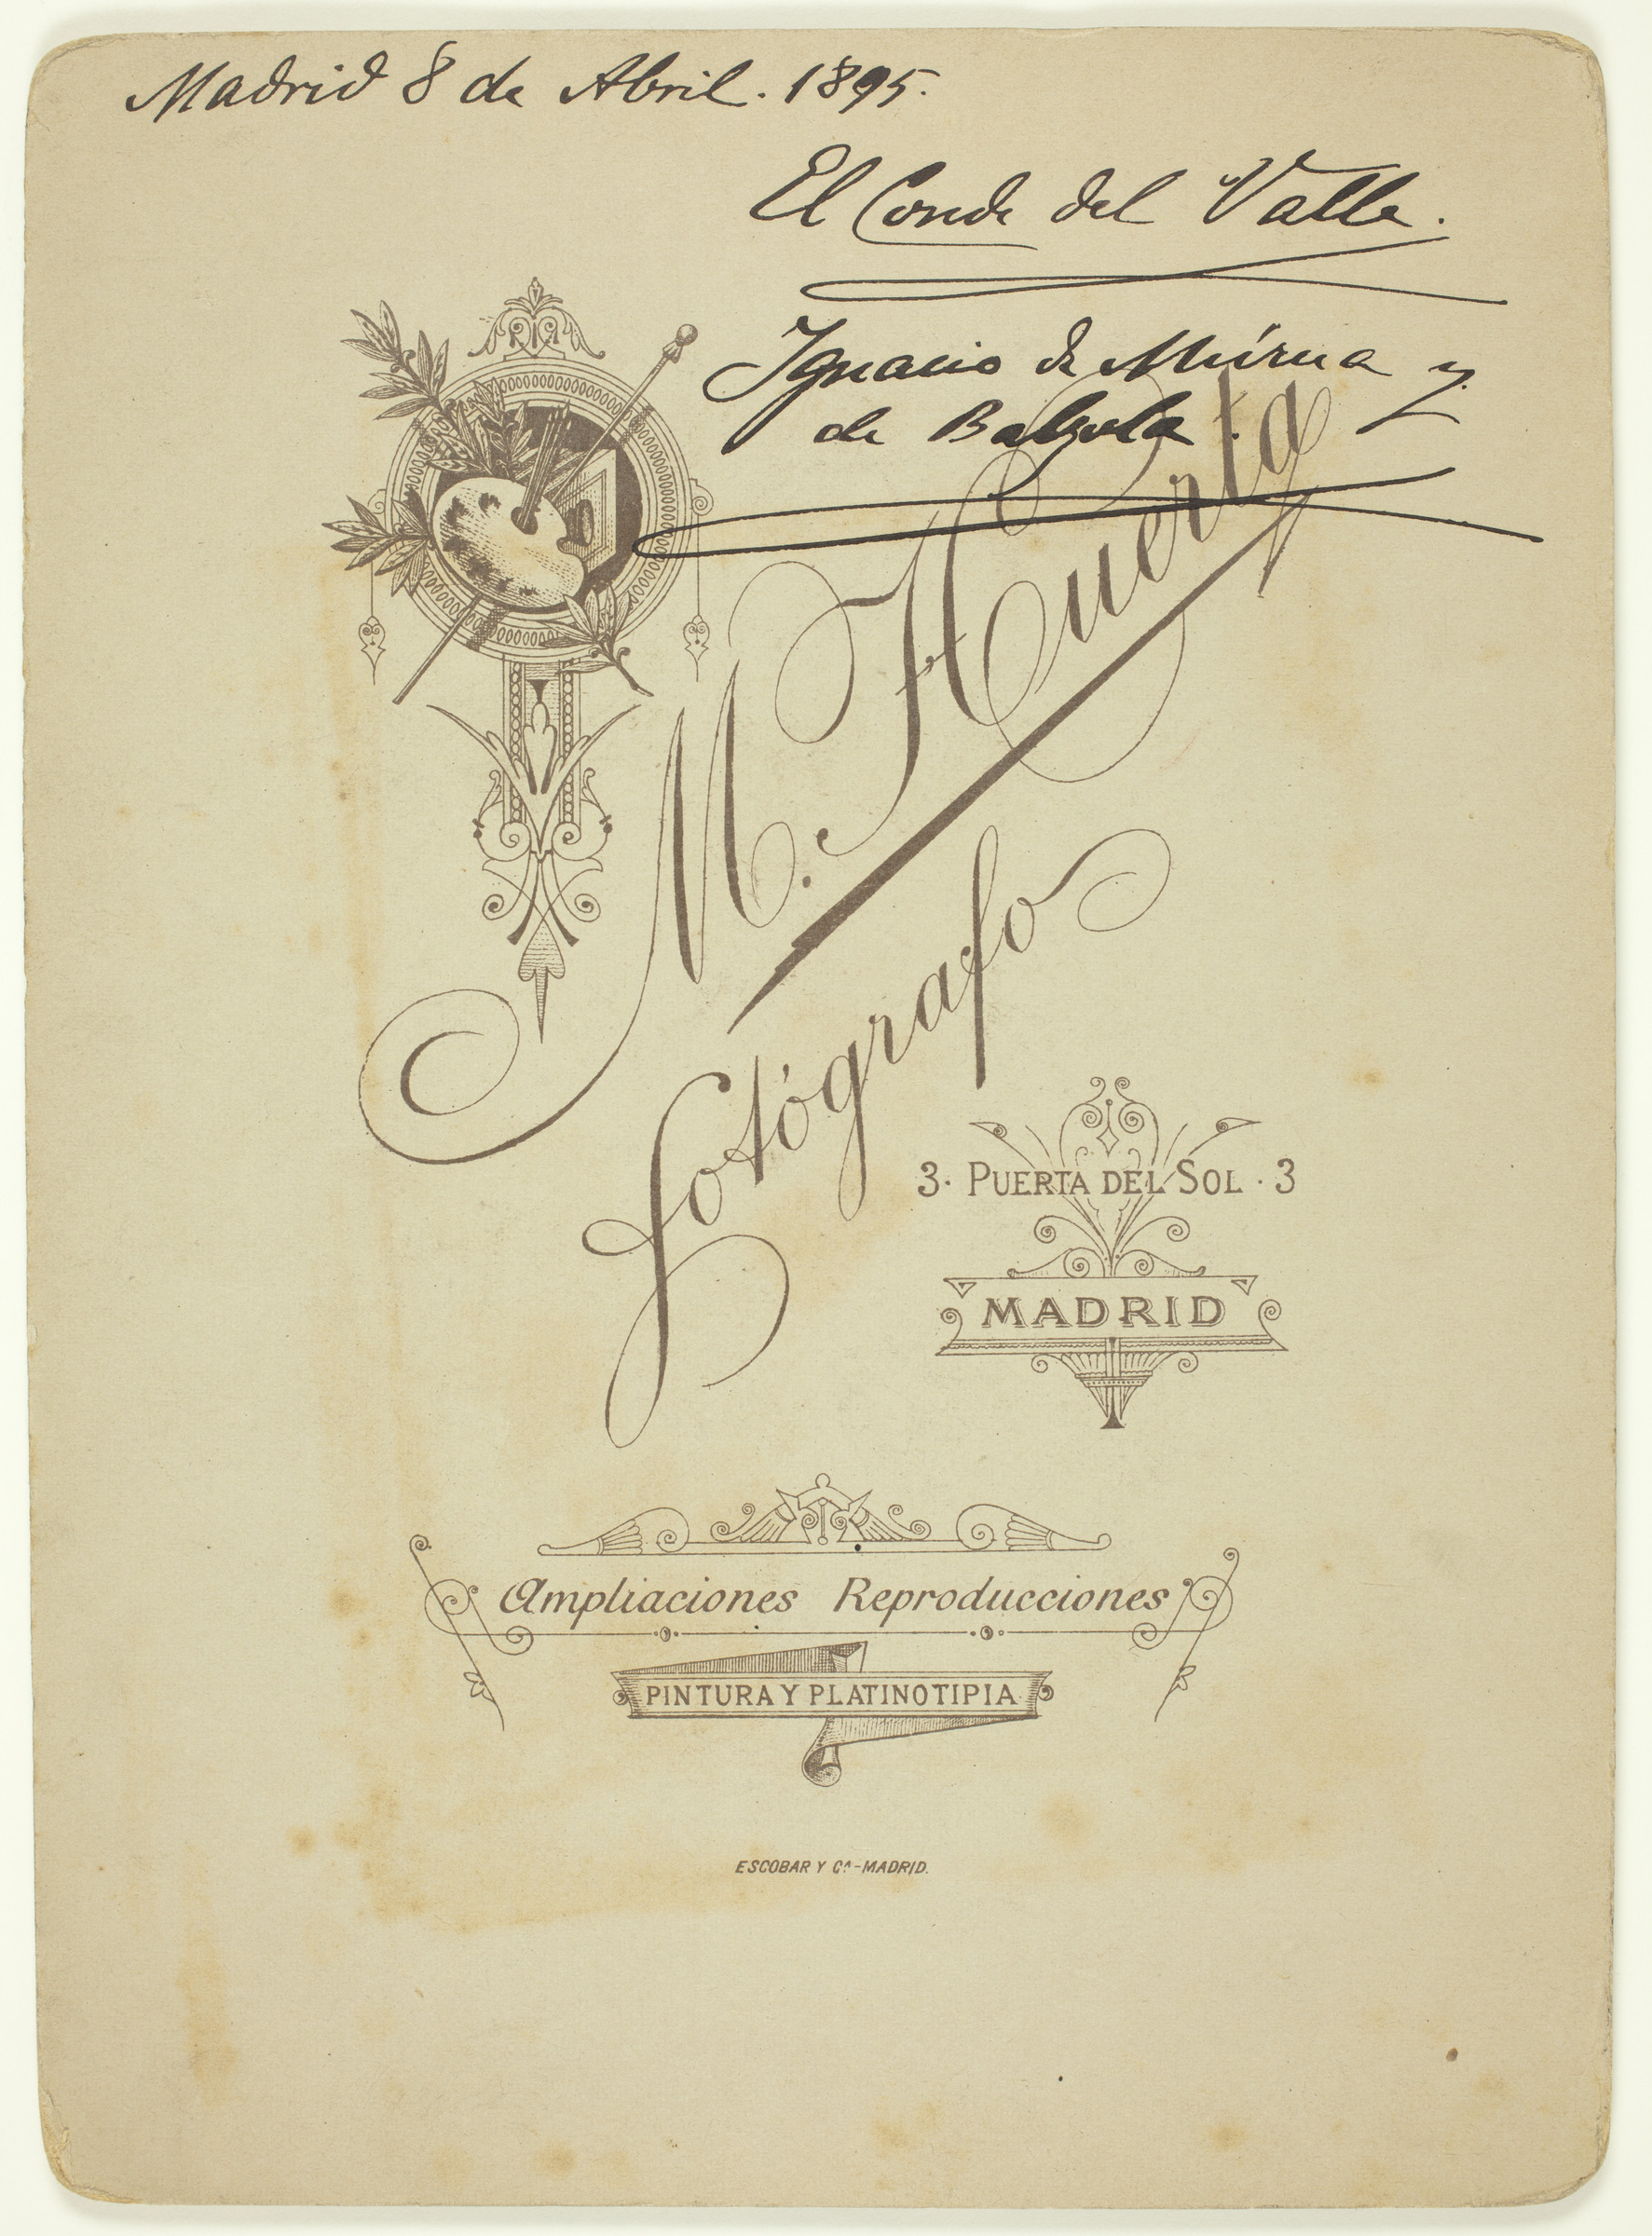 Madrid 8 de Abril. 1895.
El Conde del Valle.
Ignacio de Murua y
de Balzola.
M. Huerta
fotógrafo
3· PUERTA DEL SOL · 3
MADRID
Ampliaciones Reproducciones
PINTURA Y PLATINOTIPIA
ESCOBAR Y Cª-MADRID.